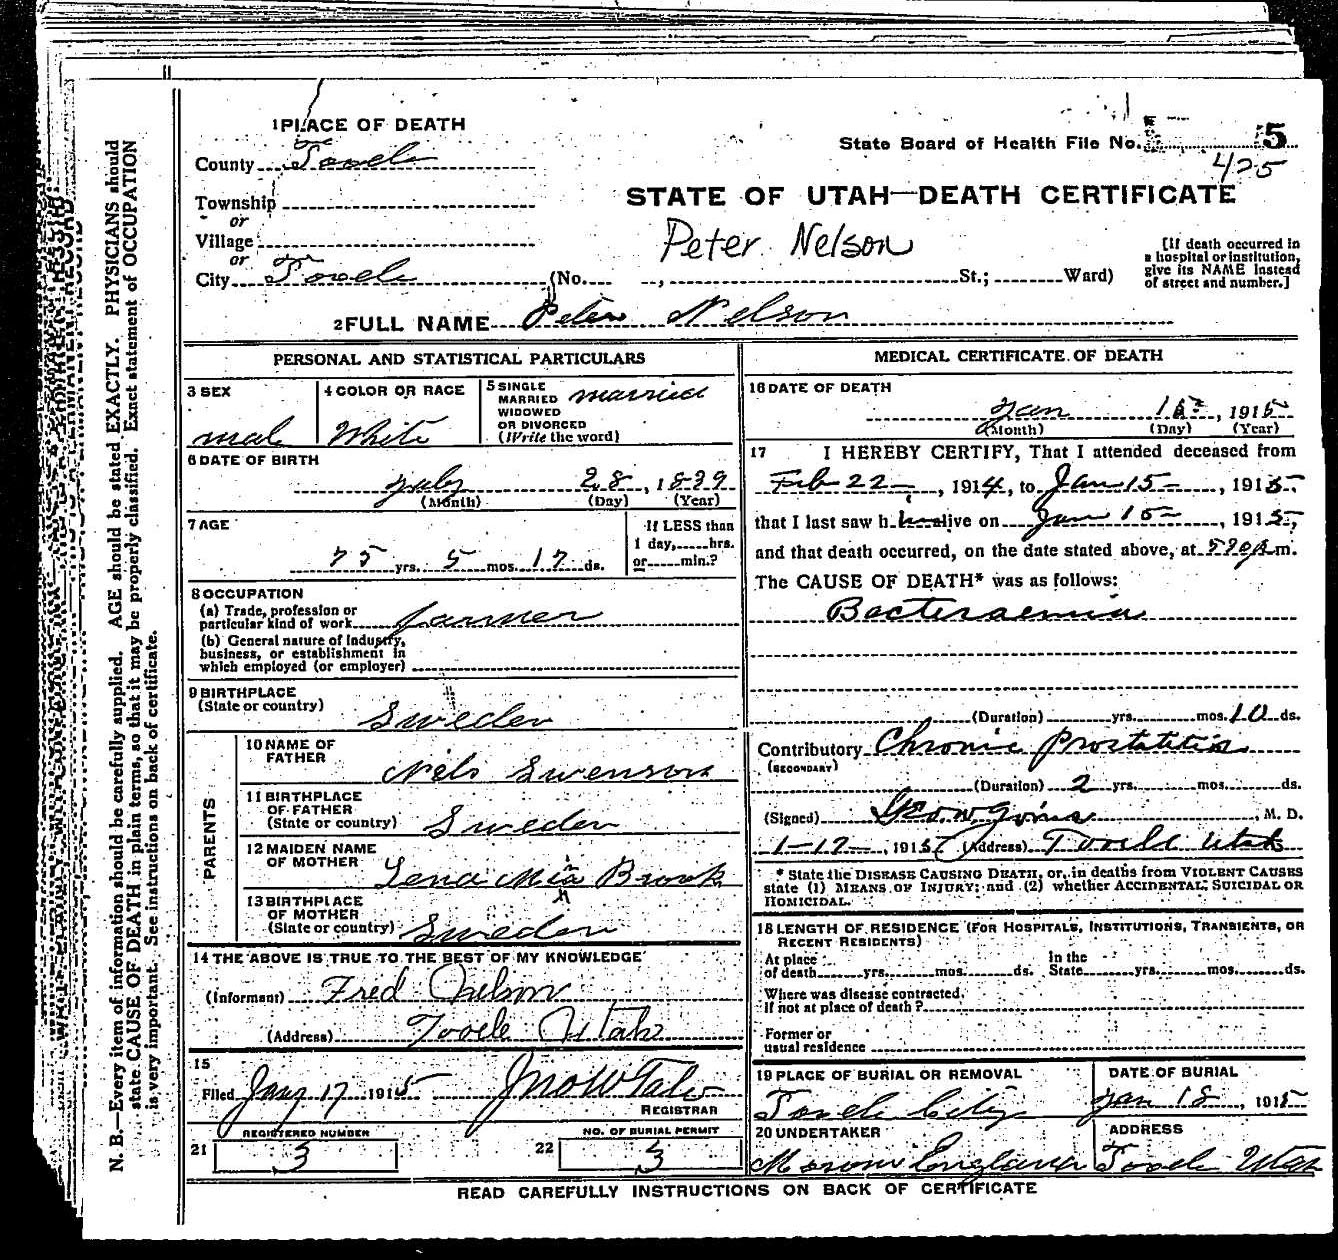 1 PLACE OF DEATH
County Tooele
State Board of Health File No. 5
425
Township
or
Village
or
City Tooele (No. , St.; Ward)
STATE OF UTAH—DEATH CERTIFICATE
Peter Nelson
[If death occurred in
a hospital or institution,
give its NAME instead
of street and number.]
2 FULL NAME Peter Nelson
PERSONAL AND STATISTICAL PARTICULARS
3 SEX
male
4 COLOR OR RACE
White
5 SINGLE
MARRIED
WIDOWED
OR DIVORCED
(Write the word)
married
6 DATE OF BIRTH
July 28, 1839
(Month) (Day) (Year)
7 AGE
75 yrs. 5 mos. 17 ds.
If LESS than
1 day, hrs.
or min.?
8 OCCUPATION
(a) Trade, profession or
particular kind of work farmer
(b) General nature of Industry,
business, or establishment in
which employed (or employer)
9 BIRTHPLACE
(State or country)
Sweden
PARENTS
10 NAME OF
FATHER
Nels Swenson
11 BIRTHPLACE
OF FATHER
(State or country) Sweden
12 MAIDEN NAME
OF MOTHER
Lena Mia Brook
13 BIRTHPLACE
OF MOTHER
(State or country) Sweden
14 THE ABOVE IS TRUE TO THE BEST OF MY KNOWLEDGE
(Informant) Fred Nelson
(Address) Tooele Utah
15
Filed Jany 17 1915
REGISTRAR
21 REGISTERED NUMBER
3
22 NO. OF BURIAL PERMIT
3
MEDICAL CERTIFICATE OF DEATH
16 DATE OF DEATH
Jan 15, 1915
(Month) (Day) (Year)
17 I HEREBY CERTIFY, That I attended deceased from
Feb 22, 1914, to Jan 15, 1915,
that I last saw h alive on Jan 15, 1915,
and that death occurred, on the date stated above, at m.
The CAUSE OF DEATH* was as follows:
Bacteraemia
(Duration) yrs. mos. 10 ds.
Contributory Chronic Prostatitis
(SECONDARY)
(Duration) 2 yrs. mos. ds.
(Signed) , M. D.
1-17, 1915 (Address) Tooele Utah
* State the DISEASE CAUSING DEATH, or, in deaths from VIOLENT CAUSES
state (1) MEANS OF INJURY; and (2) whether ACCIDENTAL, SUICIDAL OR
HOMICIDAL.
18 LENGTH OF RESIDENCE (FOR HOSPITALS, INSTITUTIONS, TRANSIENTS, OR
RECENT RESIDENTS)
At place
of death yrs. mos. ds.
In the
State yrs. mos. ds.
Where was disease contracted,
If not at place of death?
Former or
usual residence
19 PLACE OF BURIAL OR REMOVAL
Tooele City
DATE OF BURIAL
Jan 18, 1915
20 UNDERTAKER
Moroni England
ADDRESS
Tooele Utah
READ CAREFULLY INSTRUCTIONS ON BACK OF CERTIFICATE
N. B.—Every item of information should be carefully supplied. AGE should be stated EXACTLY. PHYSICIANS should
state CAUSE OF DEATH in plain terms, so that it may be properly classified. Exact statement of OCCUPATION
is very important. See instructions on back of certificate.